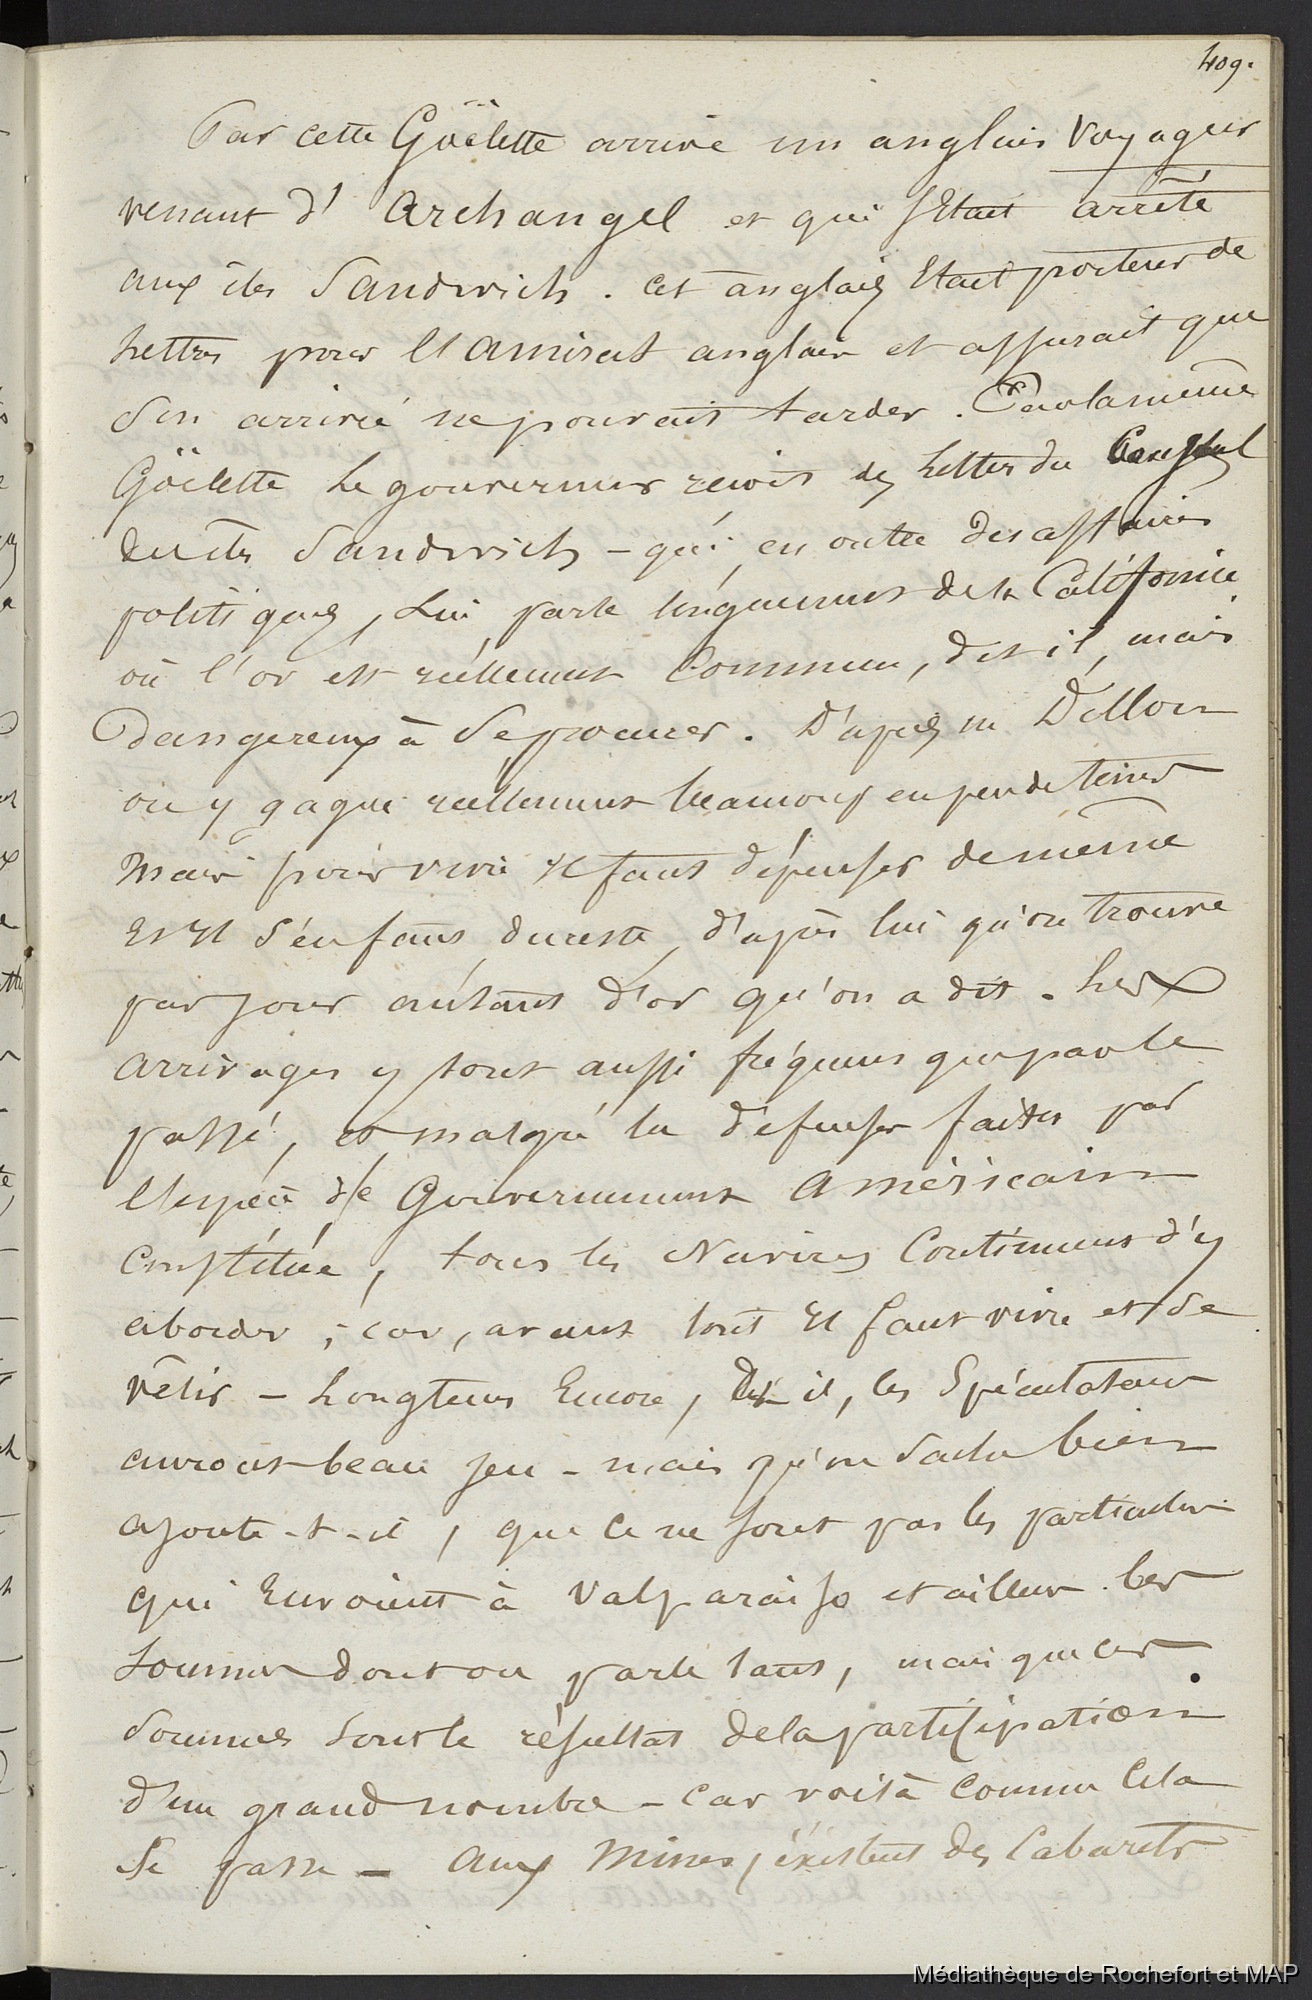 409.
Par cette Goëlette arrive un anglais Voyageur
venant d' Archangel et qui s'Etait arrêté
aux iles Sandwich. cet anglais Etait porteur de
Lettres pour l'amiral anglais et assurait que
Son arrivée ne pouvait tarder. Par la même
Goëlette Le gouverneur reçoit des Lettres du Consul
des iles Sandwich - qui, en outre des affaires
politiques, Lui parle longuement de la Californie
où l'or est réellement Commun, dit il, mais
Dangereux à Se procurer. D'après m Dillon
on y gagne réellement beaucoup en peu de tems
Mais pour vivre Il faut dépenser de même
Et Il S'en faut, du reste, d'après lui qu'on trouve
par jour autant d'or qu'on a dit. Les
arrivages y sont aussi fréquens que par le
passé, et malgré la défense faite par
l'espèce de Gouvernement américain
Constitué, tous les Navires Continuent d'y
aborder; car, avant tout Il faut vivre et Se
vêtir - Longtems Encore, dit il, les Spéculateurs
auront beau jeu - mais qu'on Sache bien
ajoute-t-il, que ce ne sont pas les particuliers
qui Envoient à Valparaiso et ailleurs les
Sommes dont on parle tant, mais que ces
Sommes sont le résultat de la participation
d'un grand nombre - Car voilà Comme Cela
Se passe - aux Mines, existent des Cabarets
Médiathèque de Rochefort et MAP